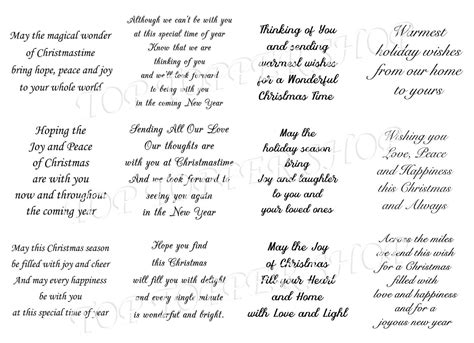 May the magical wonder
of Christmastime
bring hope, peace and joy
to your whole world
Although we can't be with you
at this special time of year
Know that we are
thinking of you
and we'll look forward
to being with you
in the coming New Year
Thinking of You
and sending
warmest wishes
for a Wonderful
Christmas Time
Warmest
holiday wishes
from our home
to yours
Hoping the
Joy and Peace
of Christmas
are with you
now and throughout
the coming year
Sending All Our Love
Our thoughts are
with you at Christmastime
And we look forward to
seeing you again
in the New Year
May the
holiday season
bring
Joy and laughter
to you and
your loved ones
Wishing you
Love, Peace
and Happiness
this Christmas
and Always
May this Christmas season
be filled with joy and cheer
And may every happiness
be with you
at this special time of year
Hope you find
this Christmas
will fill you with delight
and every single minute
is wonderful and bright.
May the Joy
of Christmas
Fill your Heart
and Home
with Love and Light
Across the miles
we send this wish
for a Christmas
filled with
love and happiness
and for a
joyous new year
TOP TOPPERS SHOP